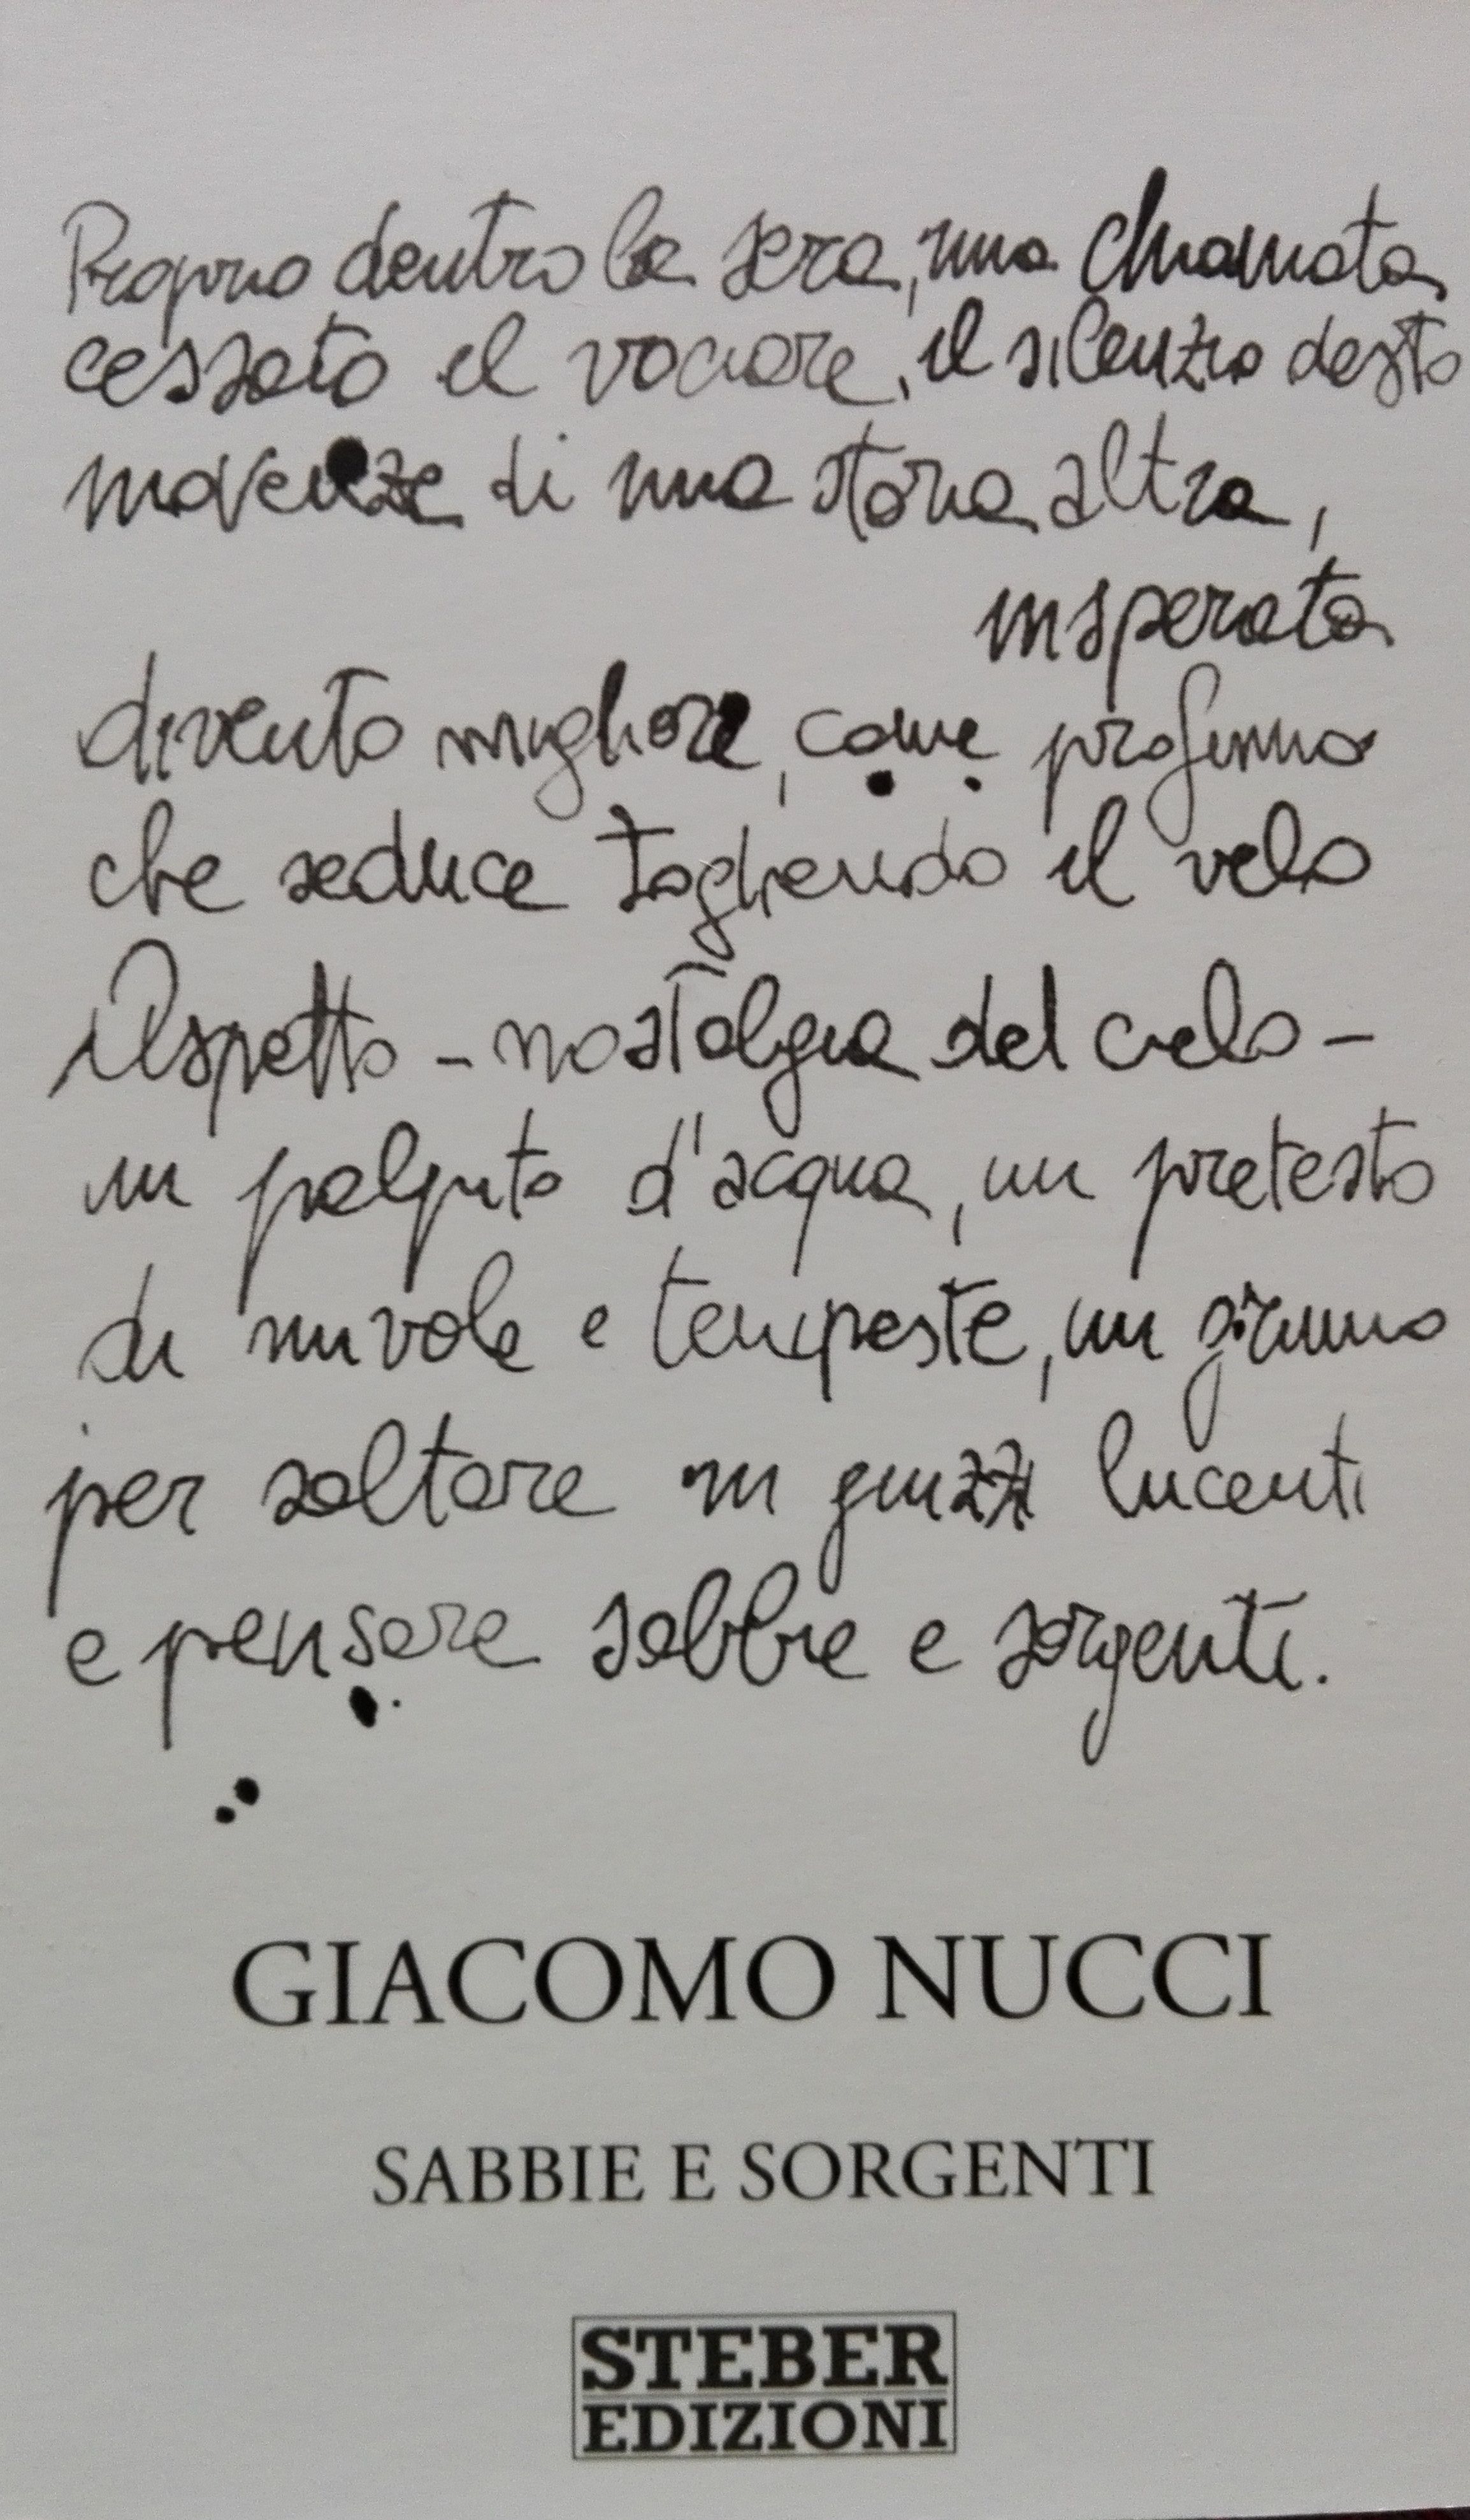 Proprio dentro la sera, una chiamata
cessato il vociare, il silenzio desto
movenze di una storia altra,
insperata
divento migliore, come profumo
che seduce togliendo il velo
Aspetto - nostalgia del cielo -
un palpito d'acqua, un pretesto
di nuvole e tempeste, un grumo
per saltare in guizzi lucenti
e pensare sabbie e sorgenti.
GIACOMO NUCCI
SABBIE E SORGENTI
STEBER
EDIZIONI